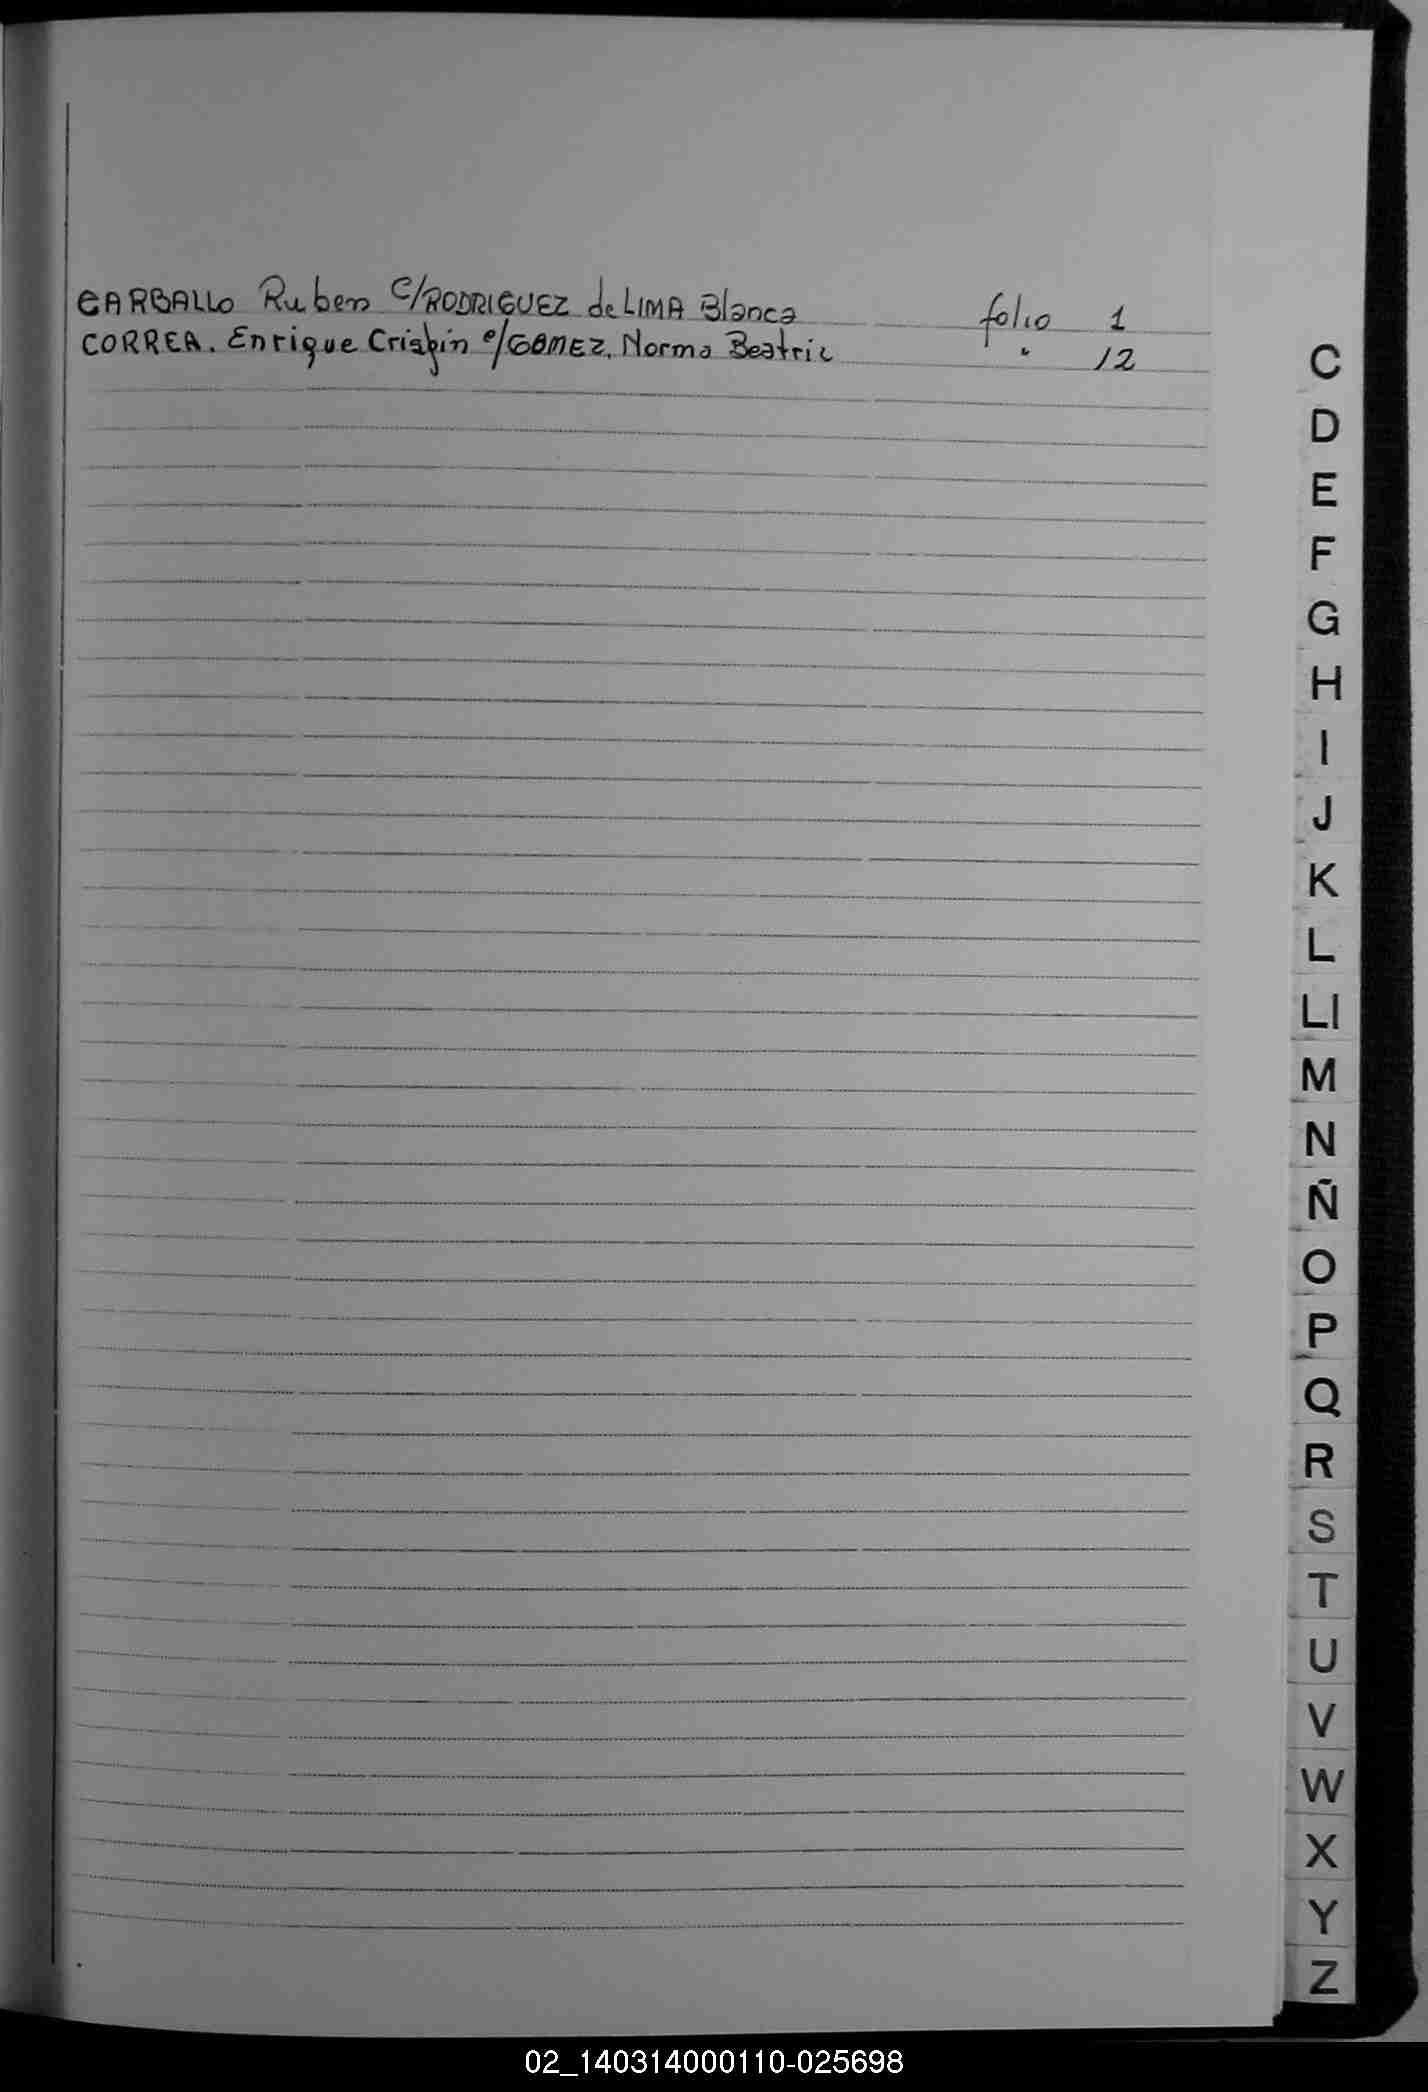 CARBALLO Ruben C/RODRIGUEZ de LIMA Blanca folio 1
CORREA. Enrique Crispin C/GOMEZ, Norma Beatriz " 12
C
D
E
F
G
H
I
J
K
L
Ll
M
N
Ñ
O
P
Q
R
S
T
U
V
W
X
Y
Z
02_140314000110-025698